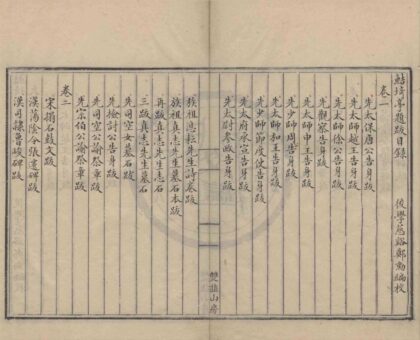 鮚埼亭題跋目録
後學慈谿鄭勳編校
卷一
先太保唐公告身跋
先太師越王告身跋
先太師徐公告身跋
先觀察告身跋
先太師申王告身跋
先少師周告身跋
先太師和王告身跋
先少師節度使告身跋
先太府承宣告身跋
先太尉參政告身跋
族祖息耘先生詩墓跋
族祖真志先生墓石本跋
再跋真志先生志石
三跋真志先生墓石
先司空女墓石跋
先檢討公告身跋
先司空公諭祭章跋
先宗伯公諭祭章跋
卷二
宋搨石鼓文跋
漢蕩陰令張遷碑跋
漢司隸魯峻碑跋
雙韭山房